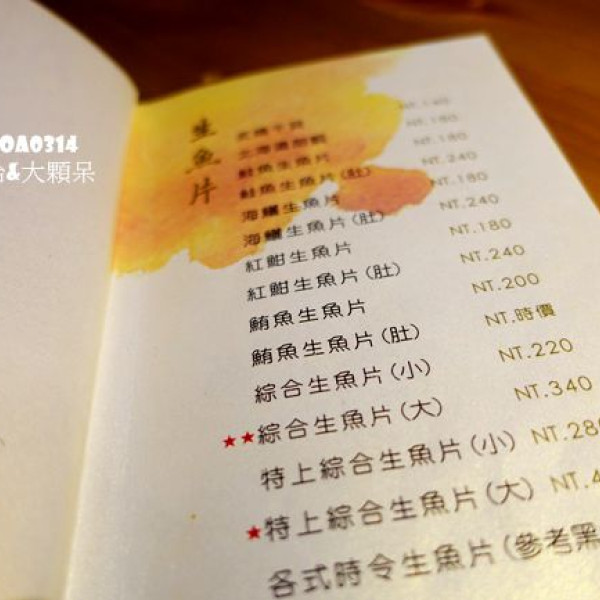 OA0314
&大顆呆
生魚片
炙燒干貝 NT.140
北海道甜蝦 NT.180
鮭魚生魚片 NT.180
鮭魚生魚片(肚) NT.240
海鱺生魚片 NT.180
海鱺生魚片(肚) NT.240
紅魽生魚片 NT.180
紅魽生魚片(肚) NT.240
鮪魚生魚片 NT.200
鮪魚生魚片(肚) NT.時價
綜合生魚片(小) NT.220
★★綜合生魚片(大) NT.340
特上綜合生魚片(小) NT.280
★特上綜合生魚片(大) NT.4
各式時令生魚片(參考黑